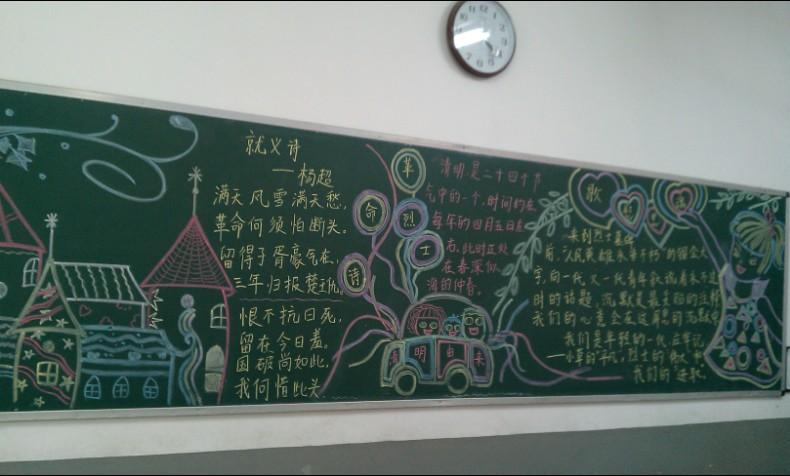 就义诗
——杨超
满天风雪满天愁,
革命何须怕断头。
留得子胥豪气在,
三年归报楚王仇。
恨不抗日死,
留在今日羞。
国破尚如此,
我何惜此头。
革
命
烈
士
诗
清明是二十四个节
气中的一个,时间约在
每年的四月五日左
右,此时正处
在春深似
海的仲春。
清明由来
歌
来到烈士墓碑
前,"人民英雄永垂不朽"的镏金大
字,向一代又一代青年
时的话题,沉默是最
我们的心意会在这
我们是年轻的一代,应牢记
——小草的"平凡",烈士的
我们的"进取"